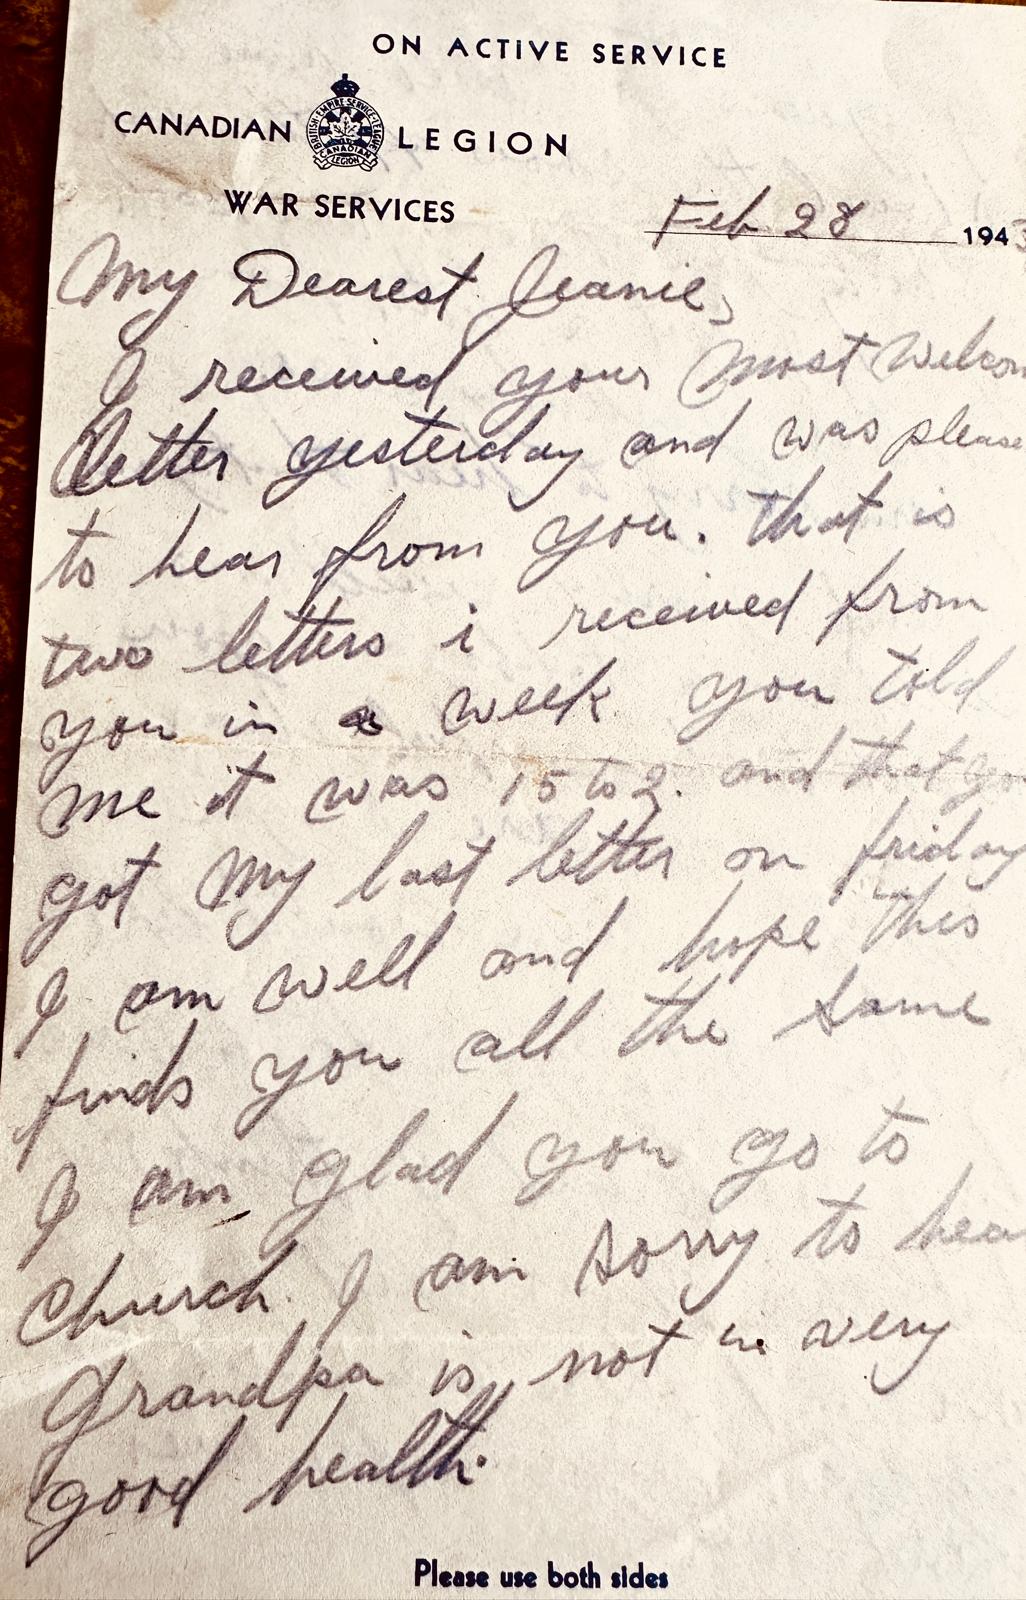 ON ACTIVE SERVICE
CANADIAN LEGION
BRITISH EMPIRE SERVICE LEAGUE
CANADIAN
LEGION
WAR SERVICES
Feb 28 1943
My Dearest Jeanie,
I received your most welcom
letter yesterday and was please
to hear from you. that is
two letters i received from
you in a week you told
me it was 15 to 2. and that yo
got my last letter on friday
I am well and hope this
finds you all the same
I am glad you go to
church. I am sorry to hea
Grandpa is not in very
good health.
Please use both sides